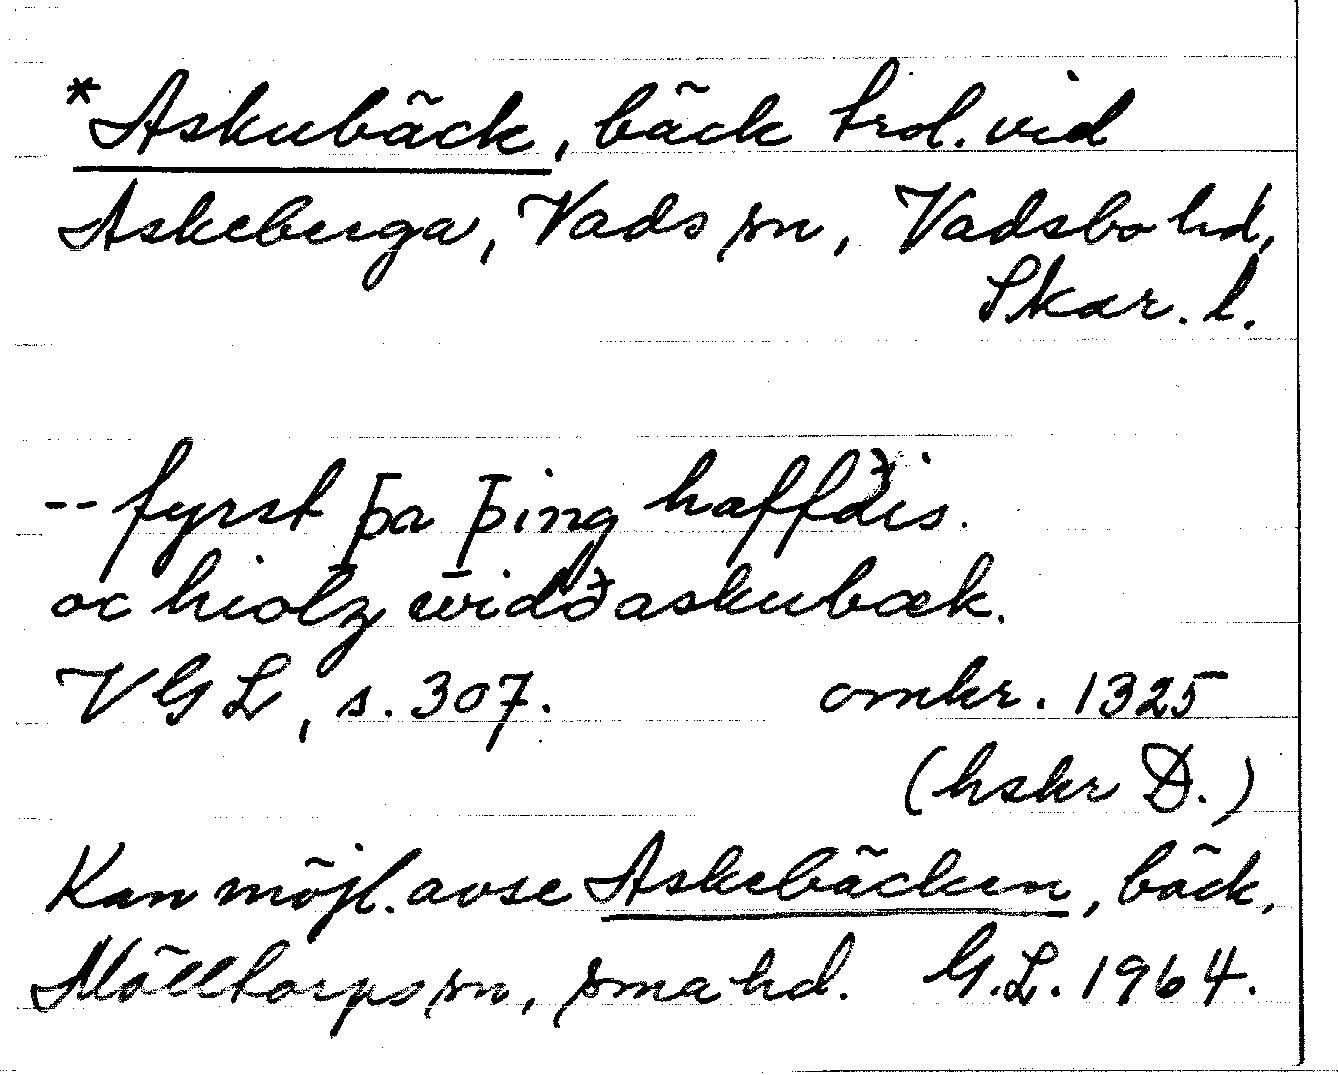 *Askubäck, bäck trol. vid
Askeberga, Vads sn, Vadsbo hd,
Skar. l.
-- fyrst þa þing haffdis.
oc hiolz widð askubæk.
VGL, s. 307. omkr. 1325
(hskr D.)
Kan möjl. avse Askebäcken, bäck,
Mölltorps sn, sma hd. G.L. 1964.